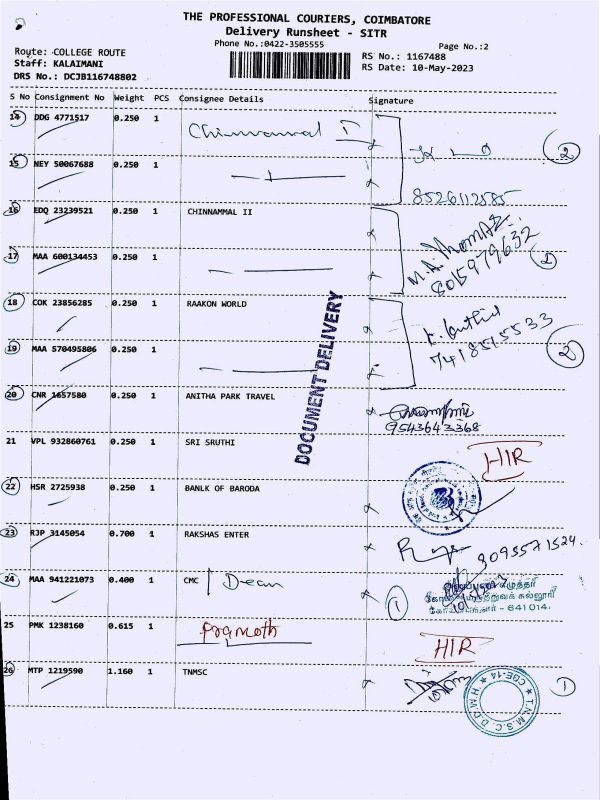 THE PROFESSIONAL COURIERS, COIMBATORE
Delivery Runsheet - SITR
Phone No.:0422-3505555
Page No.:2
Route: COLLEGE ROUTE
RS No.: 1167488
Staff: KALAIMANI
RS Date: 10-May-2023
DRS No.: DCJB116748802
S No Consignment No Weight PCS Consignee Details Signature
14 DDG 4771517 0.250 1 Chinnammal I
2
15 NEY 50067688 0.250 1
8526112585
16 EDQ 23239521 0.250 1 CHINNAMMAL II
M.A. Thomas
8015979632
17 MAA 600134453 0.250 1
18 COK 23856285 0.250 1 RAAKON WORLD
7418515533
19 MAA 570495806 0.250 1
2
DOCUMENT DELIVERY
20 CNR 1657580 0.250 1 ANITHA PARK TRAVEL
9543643368
21 VPL 932860761 0.250 1 SRI SRUTHI
HIR
22 HSR 2725938 0.250 1 BANLK OF BARODA
23 RJP 3145054 0.700 1 RAKSHAS ENTER
9095571524
24 MAA 941221073 0.400 1 CMC Dean
1
- 641 014.
25 PMK 1238160 0.615 1 Pramoth
HIR
26 MTP 1219590 1.160 1 TNMSC
1
T.N.M.S.C. D.D.W.H
CBE-14